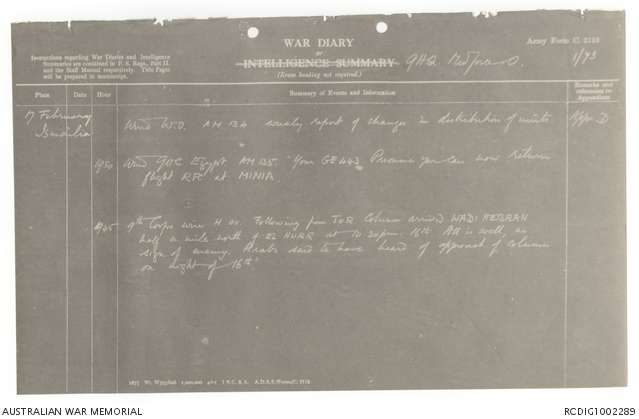 Army Form C. 2118
WAR DIARY
or
INTELLIGENCE SUMMARY
(Erase heading not required.)
GHQ Medforce
1/73
Instructions regarding War Diaries and Intelligence
Summaries are contained in F. S. Regs., Part II.
and the Staff Manual respectively. Title Pages
will be prepared in manuscript.
Place
Date
Hour
Summary of Events and Information
Remarks and
references to
Appendices
17 February
Ismailia
Wired W.O. AM 134 weekly report of changes in distribution of units
App. D
Wired GOC Egypt AM 135. "Your GE 443. Presume you can now return
flight RFC at MINIA
9th Corps wire H Following from TOR Column arrived WADI HEBRAN
half a mile north of EL HURR at 12 30pm. 16th. All is well, no
sign of enemy. Arabs said to have heard of approach of column
on night of 16th"
1875 Wt. W593/826 1,000,000 4/15 J.B.C. & A. A.D.S.S./Forms/C. 2118.
AUSTRALIAN WAR MEMORIAL
RCDIG1002289